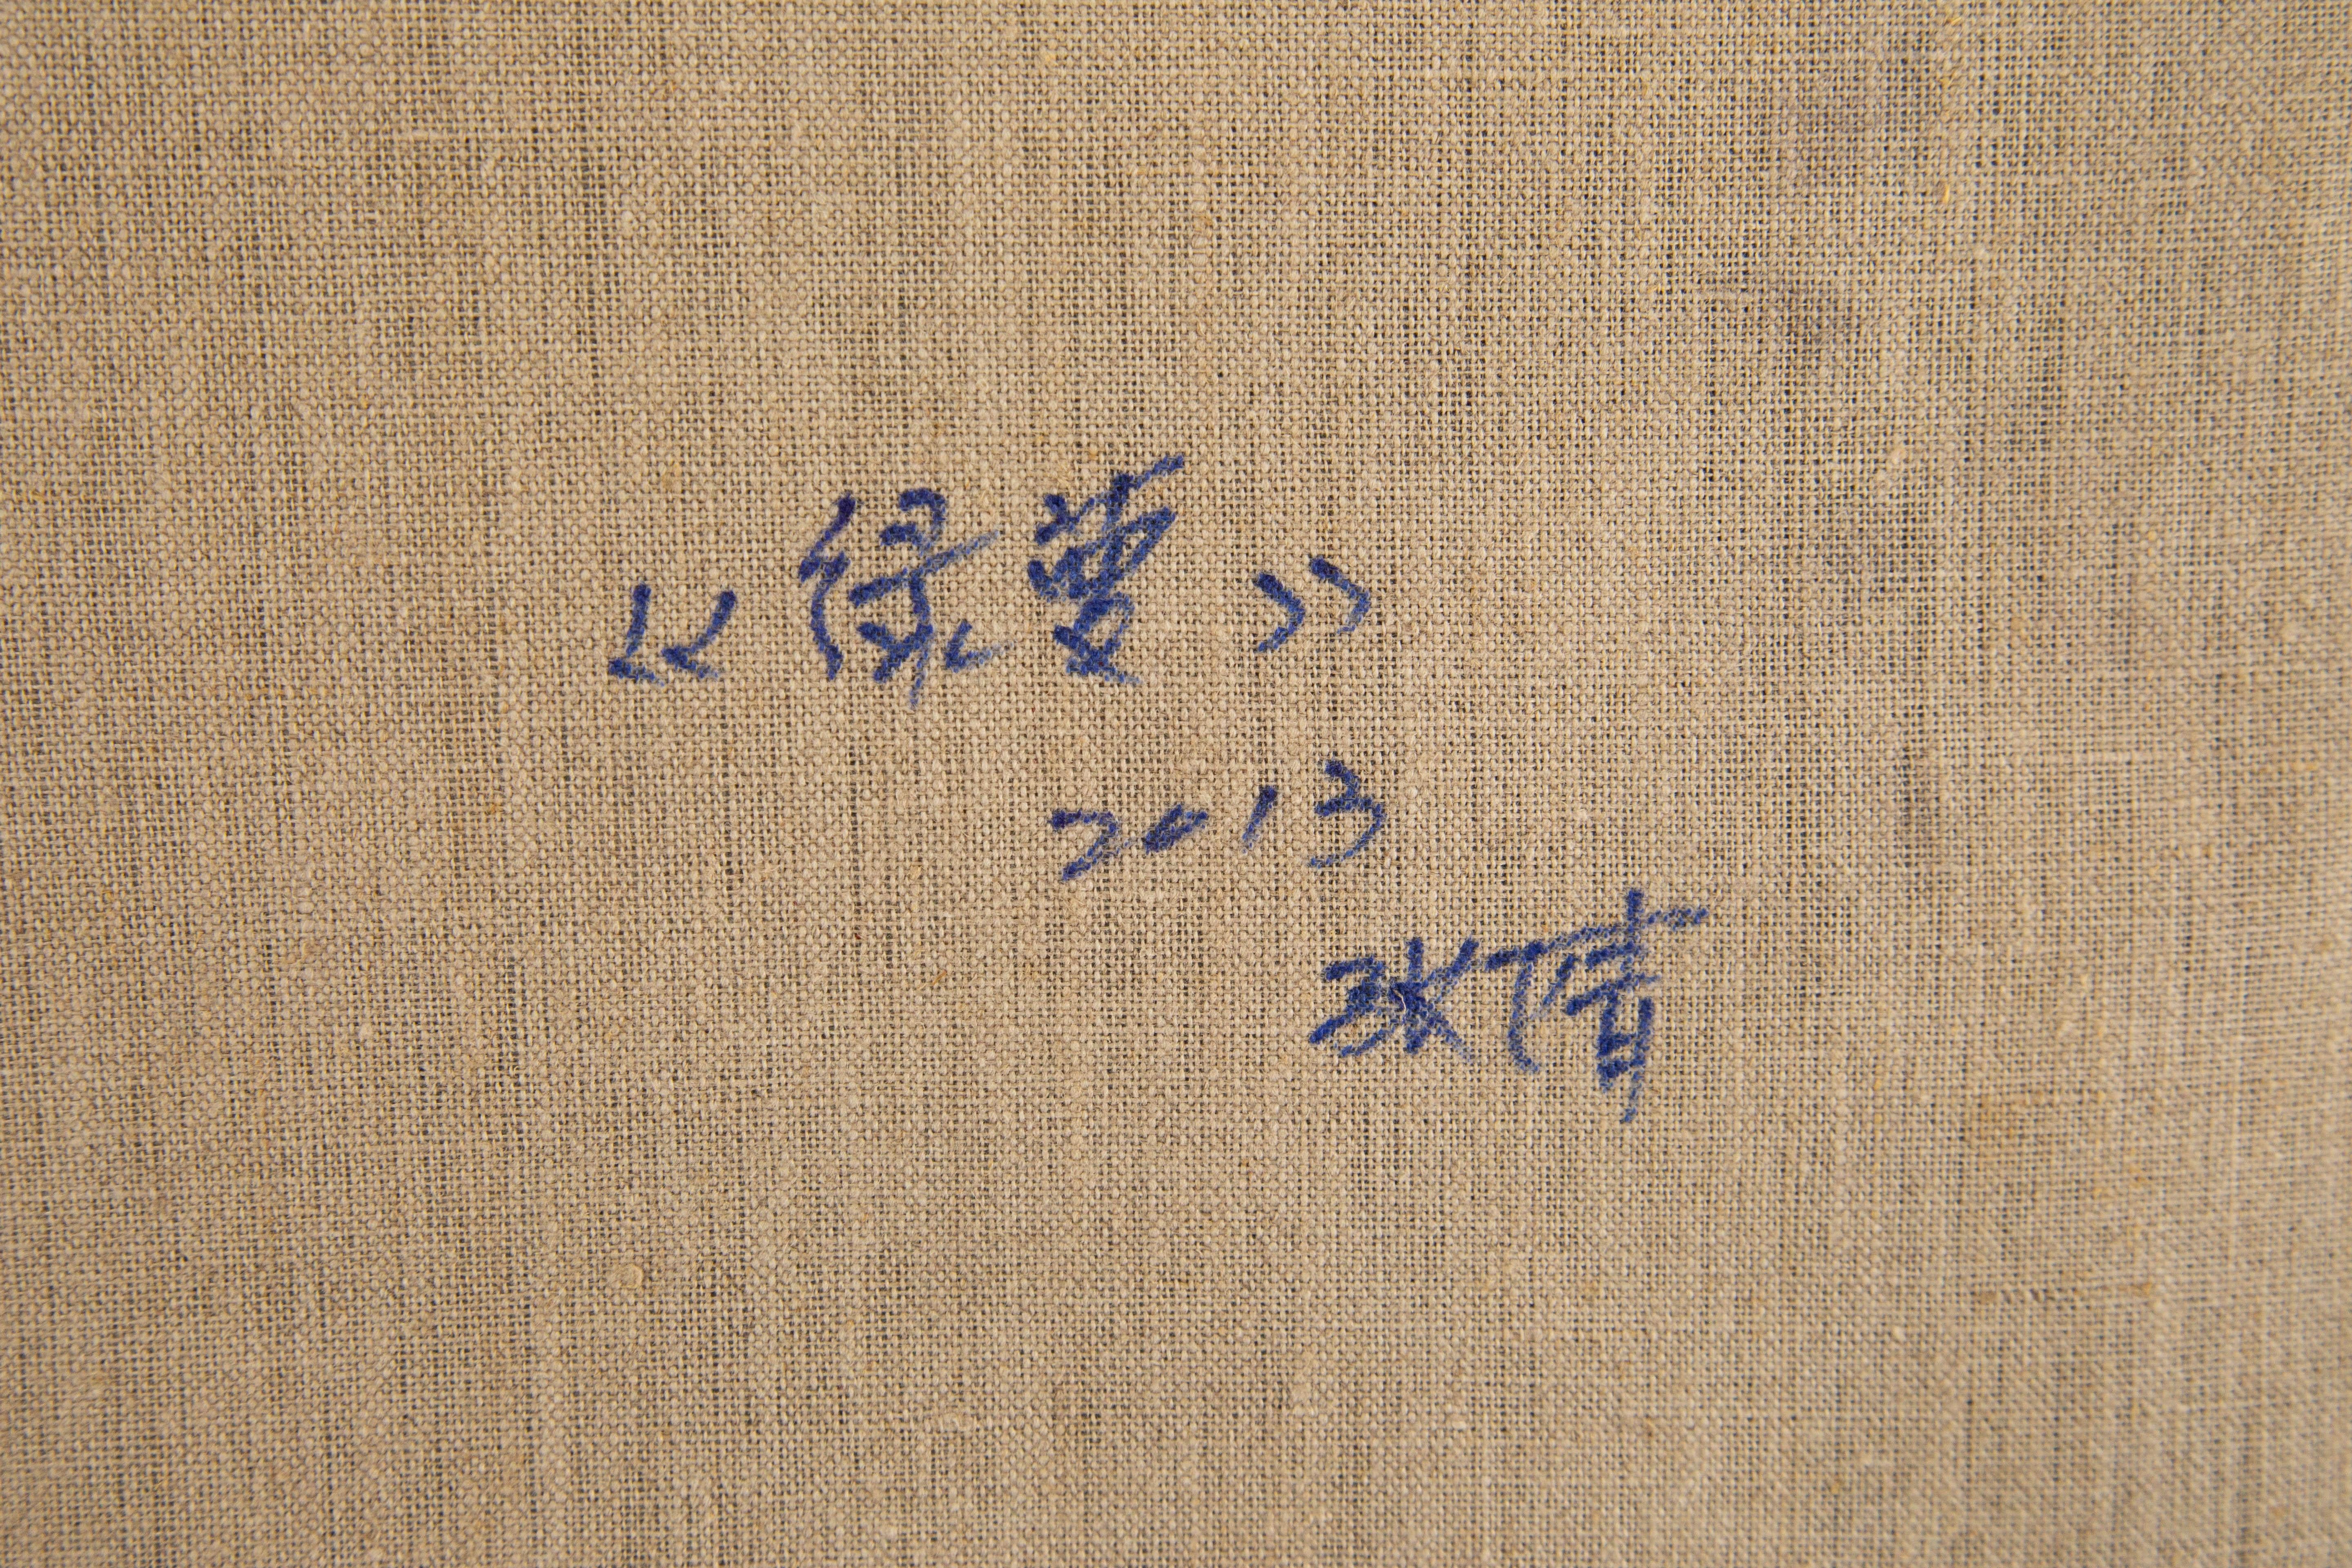 《绿萝》
2013
张倩